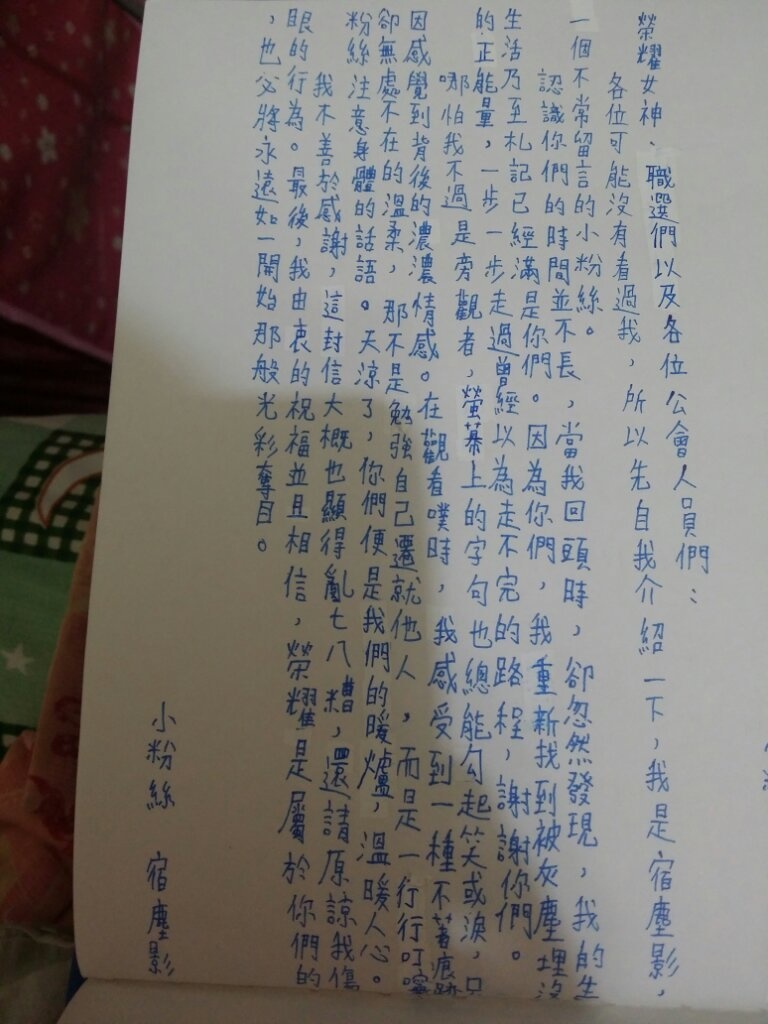 榮耀女神、職選們以及各位公會人員們：
各位可能沒有看過我，所以先自我介紹一下，我是宿塵影，
一個不常留言的小粉絲。
認識你們的時間並不長，當我回頭時，卻忽然發現，我的生
生活乃至札記已經滿是你們。因為你們，我重新找到被灰塵埋沒
的正能量，一步一步走過曾經以為走不完的路程，謝謝你們。
哪怕我不過是旁觀者，螢幕上的字句也總能勾起笑或淚，只
因感覺到背後的濃濃情感。在觀看噗時，我感受到一種不著痕跡
卻無處不在的溫柔，那不是勉強自己遷就他人，而是一行行叮嚀
粉絲注意身體的話語。天涼了，你們便是我們的暖爐，溫暖人心。
我不善於感謝，這封信大概也顯得亂七八糟，還請原諒我傷
眼的行為。最後，我由衷的祝福並且相信，榮耀是屬於你們的
，也必將永遠如一開始那般光彩奪目。
小粉絲 宿塵影